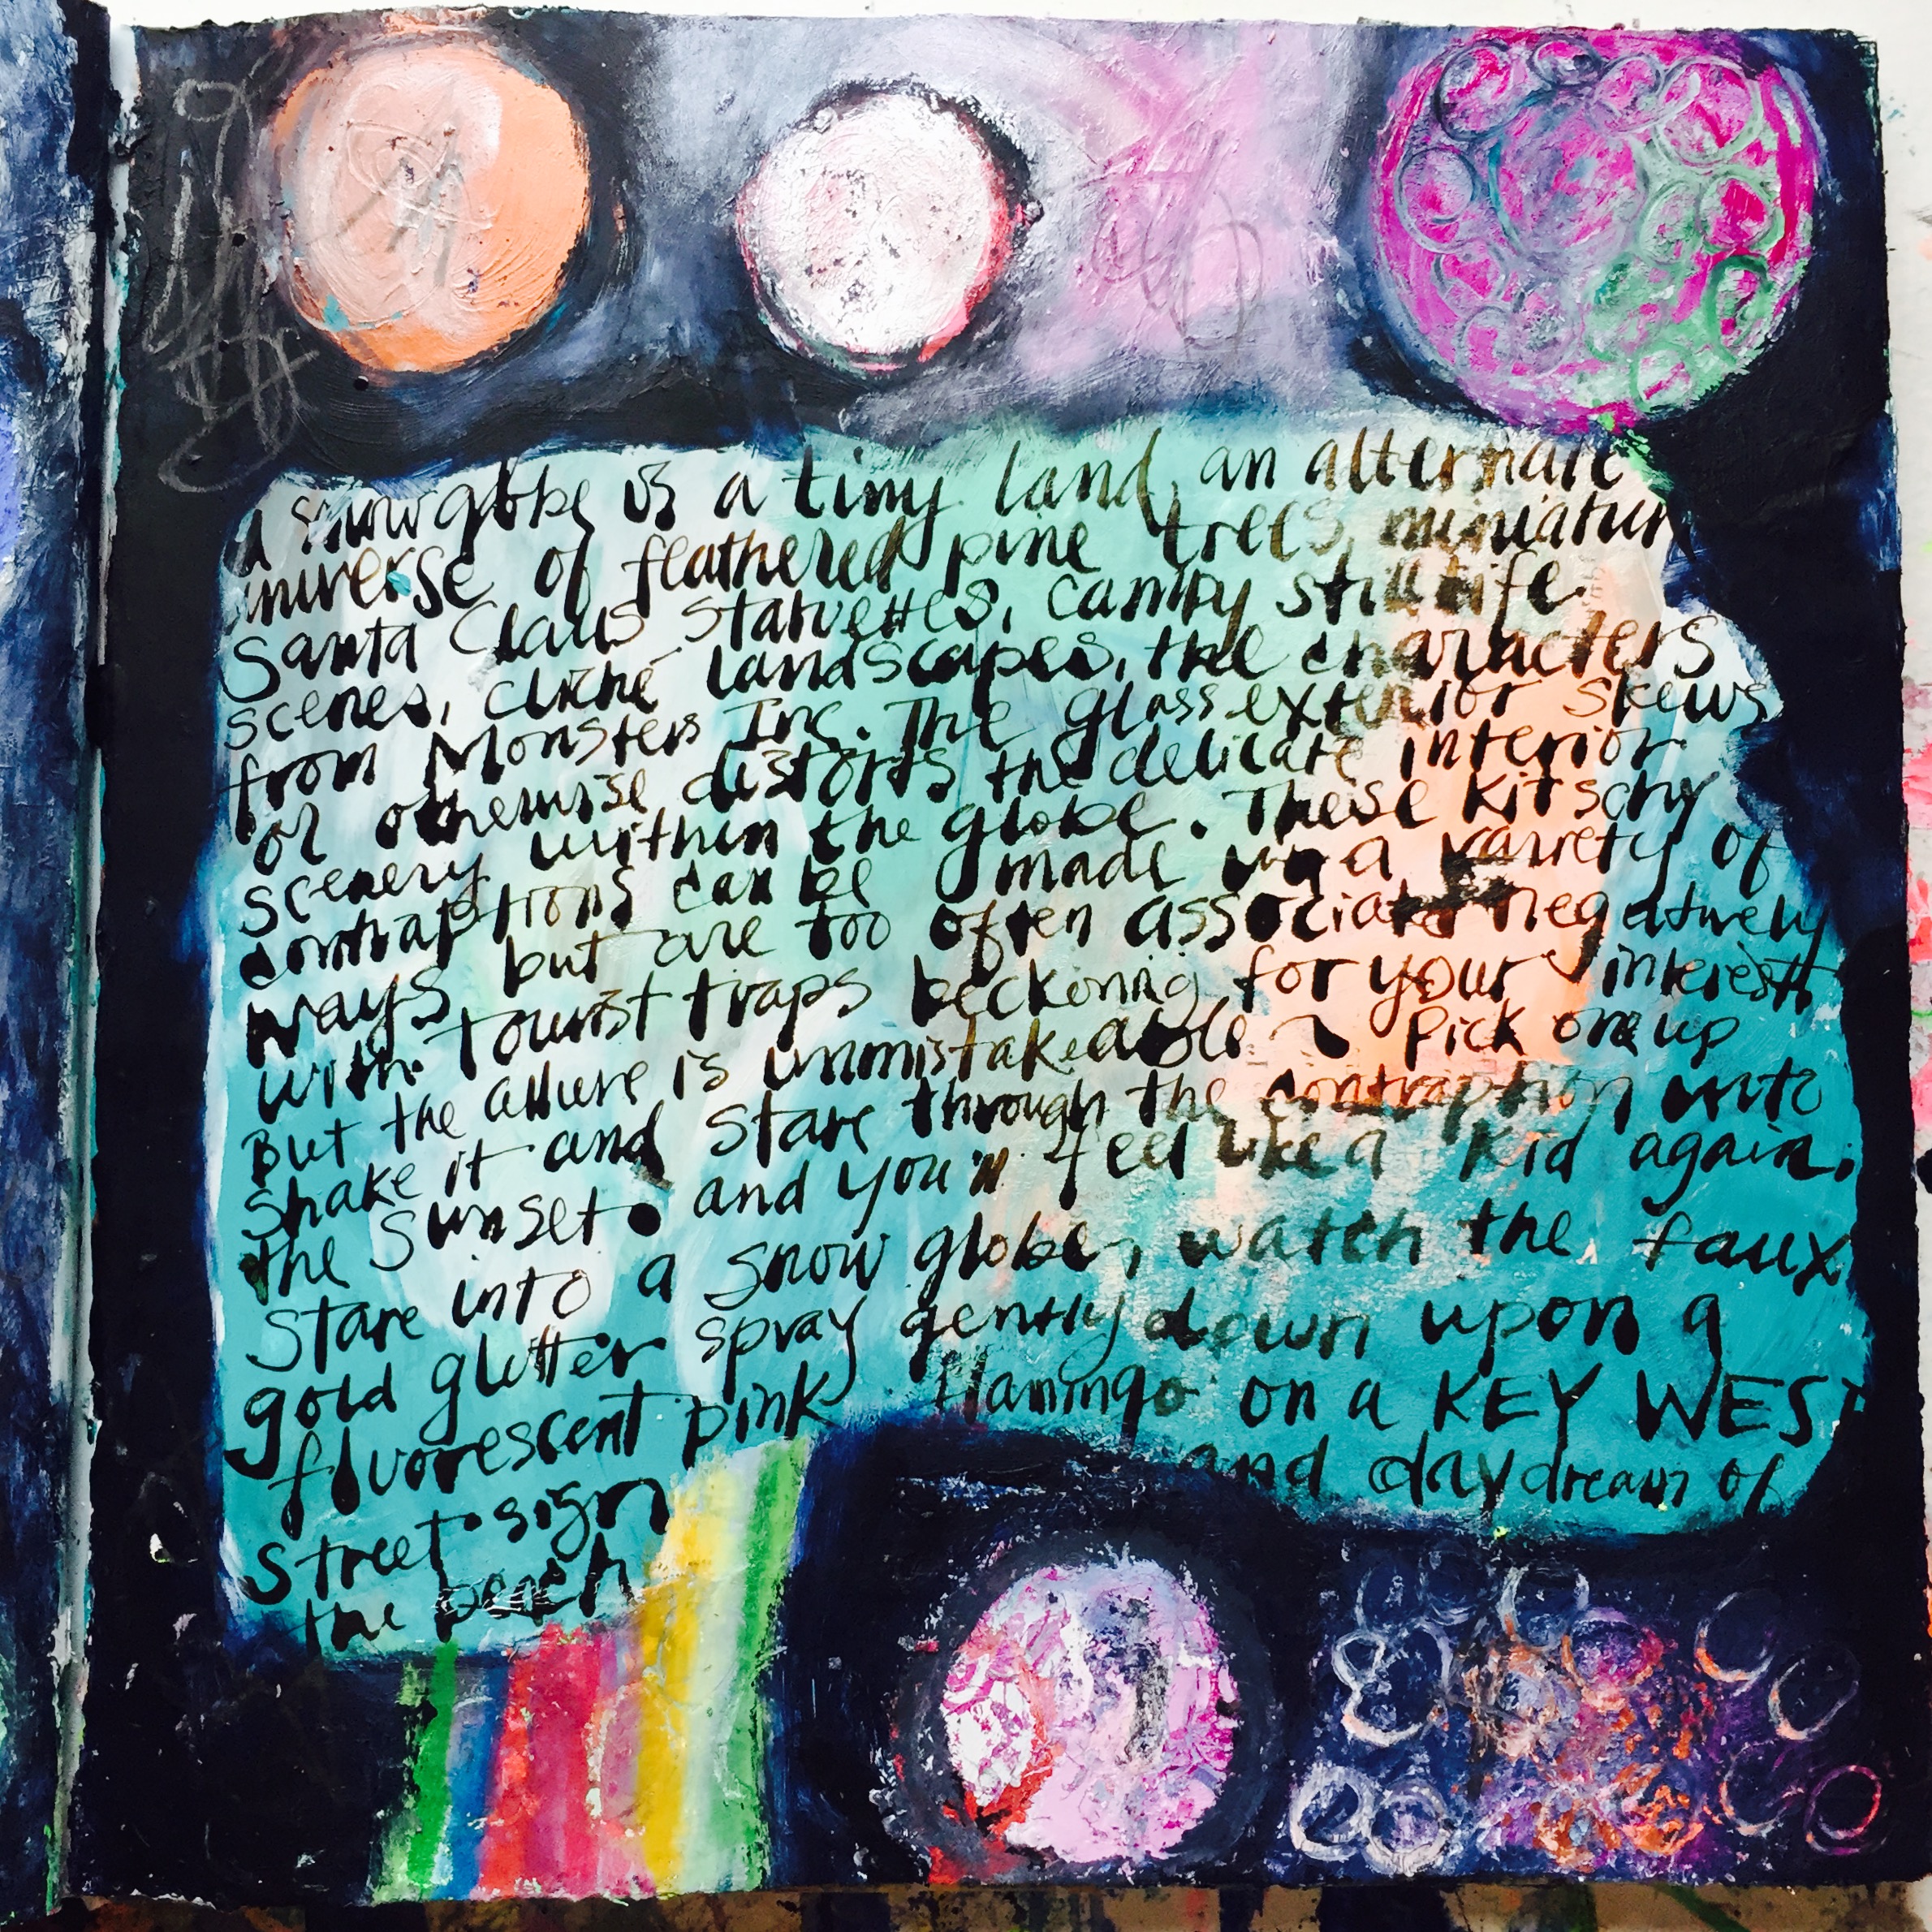 a snowglobe is a tiny land, an alternate
universe of feathered pine trees, miniature
Santa Claus statuettes, campy still life
scenes, cliché landscapes, the characters
from Monsters Inc. The glass exterior skews
or otherwise distorts the delicate interior
scenery within the globe. These kitschy
contraptions can be made in a variety of
ways but are too often associated negatively
with tourist traps beckoning for your interest.
But the allure is unmistakeable - pick one up
shake it and stare through the contraption into
the sunset. and you'll feel like a kid again.
Stare into a snow globe, watch the faux
gold glitter spray gently down upon a
fluorescent pink flamingo on a KEY WEST
street sign and daydream of
the beach